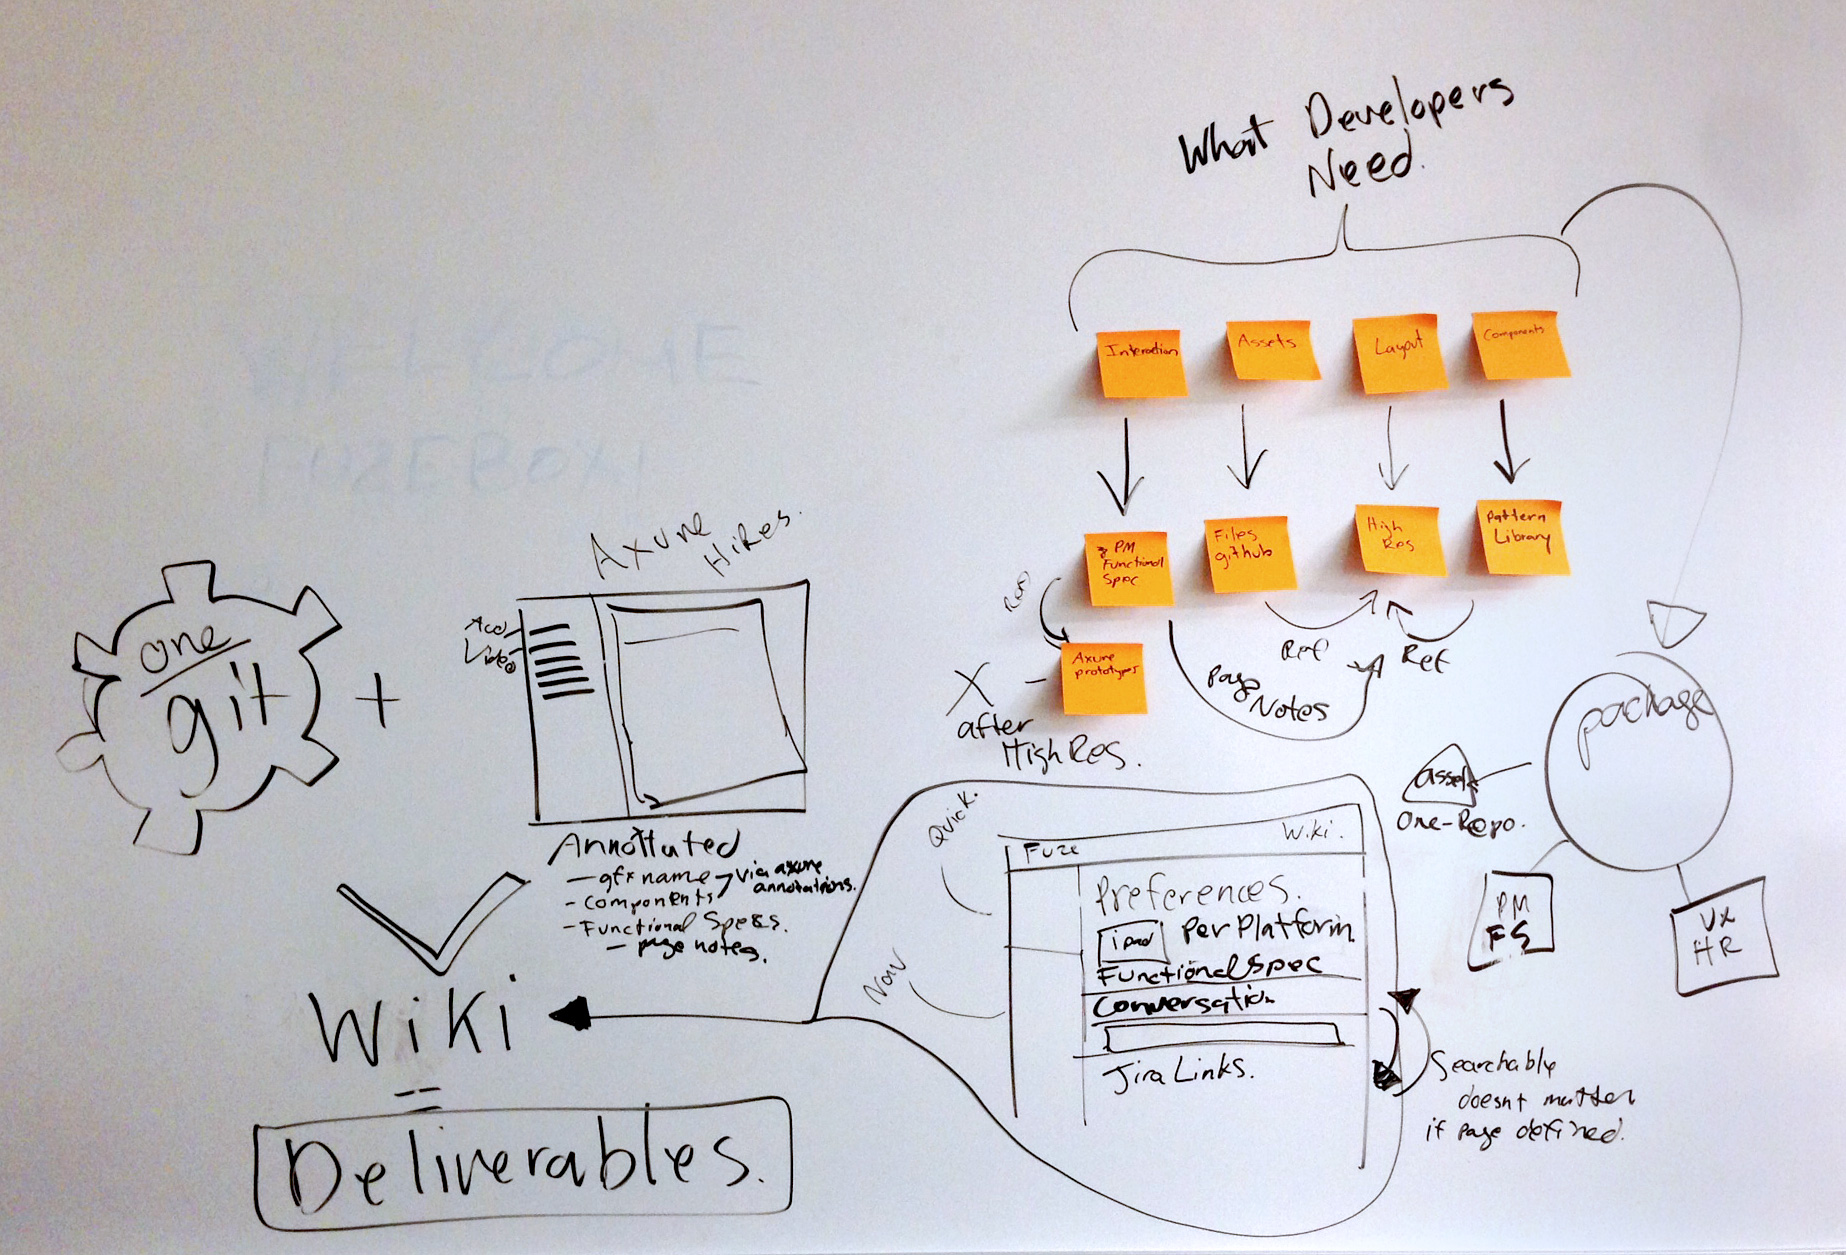 What Developers
Need.
Interaction
Assets
Layout
Components
PM
Functional
Spec
Files
github
High
Res
Pattern
Library
Ref
Axure
prototypes
X -
after
High Res.
Page
Notes
Ref
Ref
WELCOME
FUZEBOX!
one
git
+
Axure
HiRes.
Video
Annottated
- gfx name
- components
via axure
annotations.
- Functional Specs.
- page notes.
Wiki
=
Deliverables.
Quick.
Nav
Fuze
Wiki.
Preferences.
ipad
Per Platform
Functional Spec
Conversation
Jira Links.
Searchable
doesnt matter
if page defined.
package
assets
One-Repo.
PM
FS
UX
HR